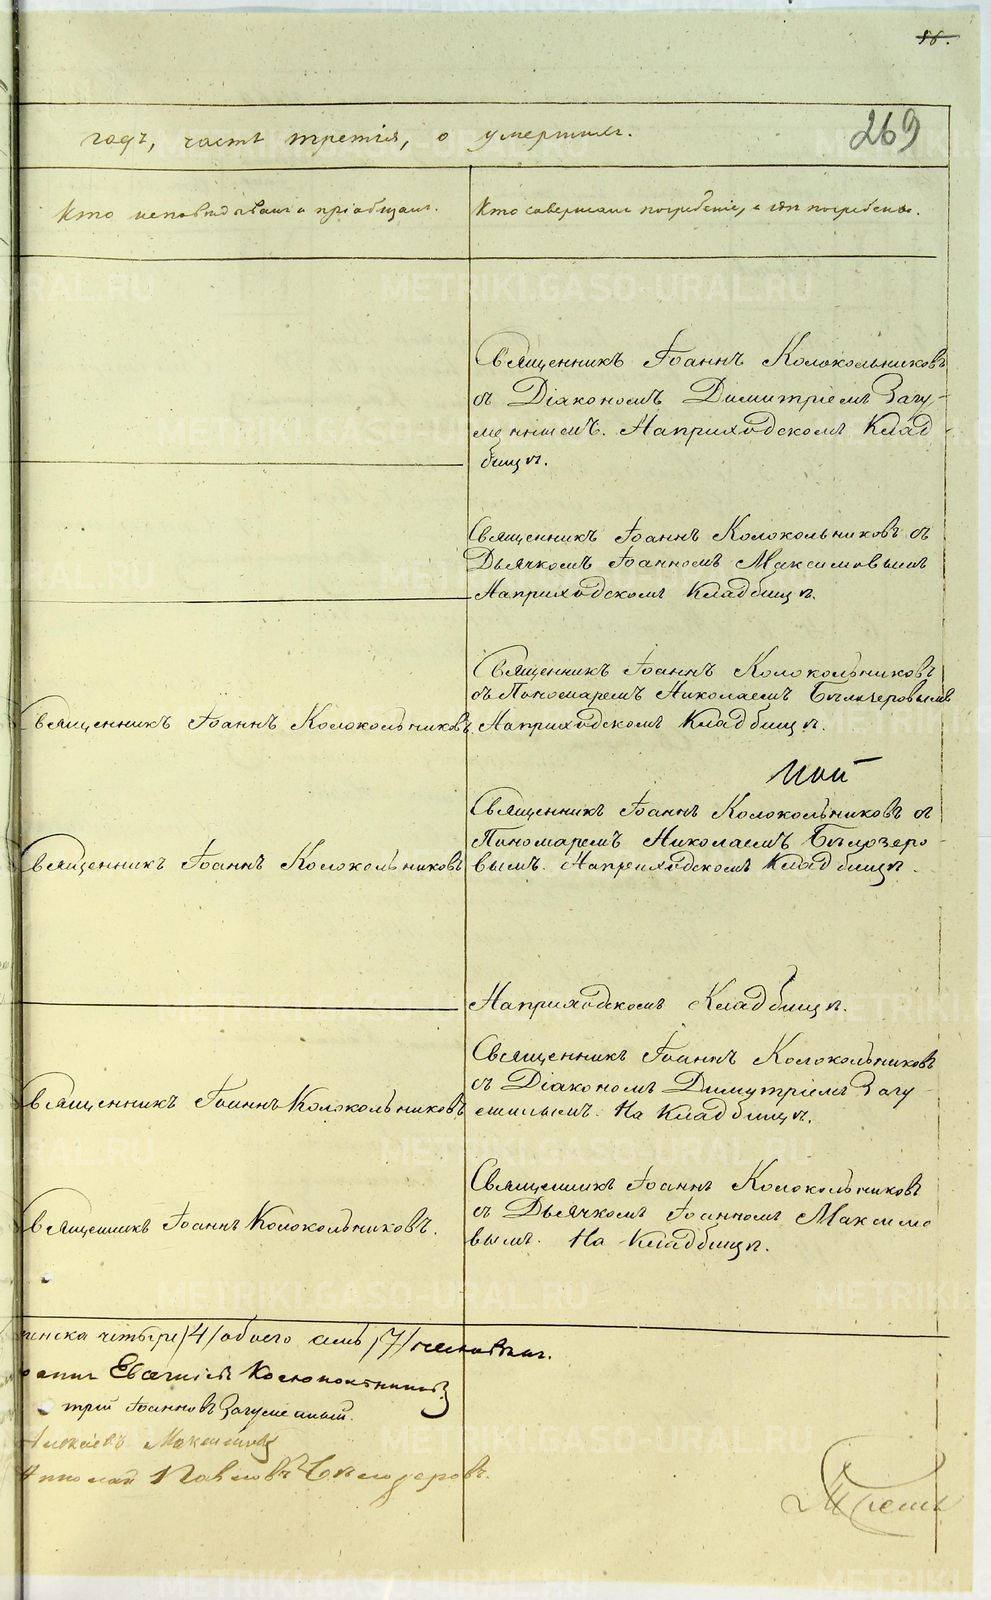 56.
годъ, часть третія, о умершихъ.
269
Кто исповѣдывалъ и пріобщалъ.
Кто совершалъ погребеніе, и гдѣ погребены.
Священникъ Іоаннъ Колокольниковъ
съ Діакономъ Димитріемъ Загу-
меннымъ. Наприходскомъ Клад-
бищѣ.
Священникъ Іоаннъ Колокольниковъ съ
Дьячкомъ Іоанномъ Максимовымъ
Наприходскомъ Кладбищѣ.
Священникъ Іоаннъ Колокольниковъ
Священникъ Іоаннъ Колокольниковъ
съ Пономаремъ Николаемъ Бѣлозеровымъ
Наприходскомъ Кладбищѣ.
Мой
Священникъ Іоаннъ Колокольниковъ
Священникъ Іоаннъ Колокольниковъ съ
Пономаремъ Николаемъ Бѣлозеро-
вымъ. Наприходскомъ Кладбищѣ.
Наприходскомъ Кладбищѣ.
Священникъ Іоаннъ Колокольниковъ
Священникъ Іоаннъ Колокольниковъ
съ Діакономъ Димутріемъ Загу-
На Кладбищѣ.
Священникъ Іоаннъ Колокольниковъ.
Священникъ Іоаннъ Колокольниковъ
съ Дьячкомъ Іоанномъ Максимо
вымъ. На Кладбищѣ.
женска четыре /4/ обоего /7/ человѣкъ.
Евгеній
трій Іоанновъ Загуменный.
Николай Павловъ Бѣлозеровъ.
METRIKI.GASO-URAL.RU